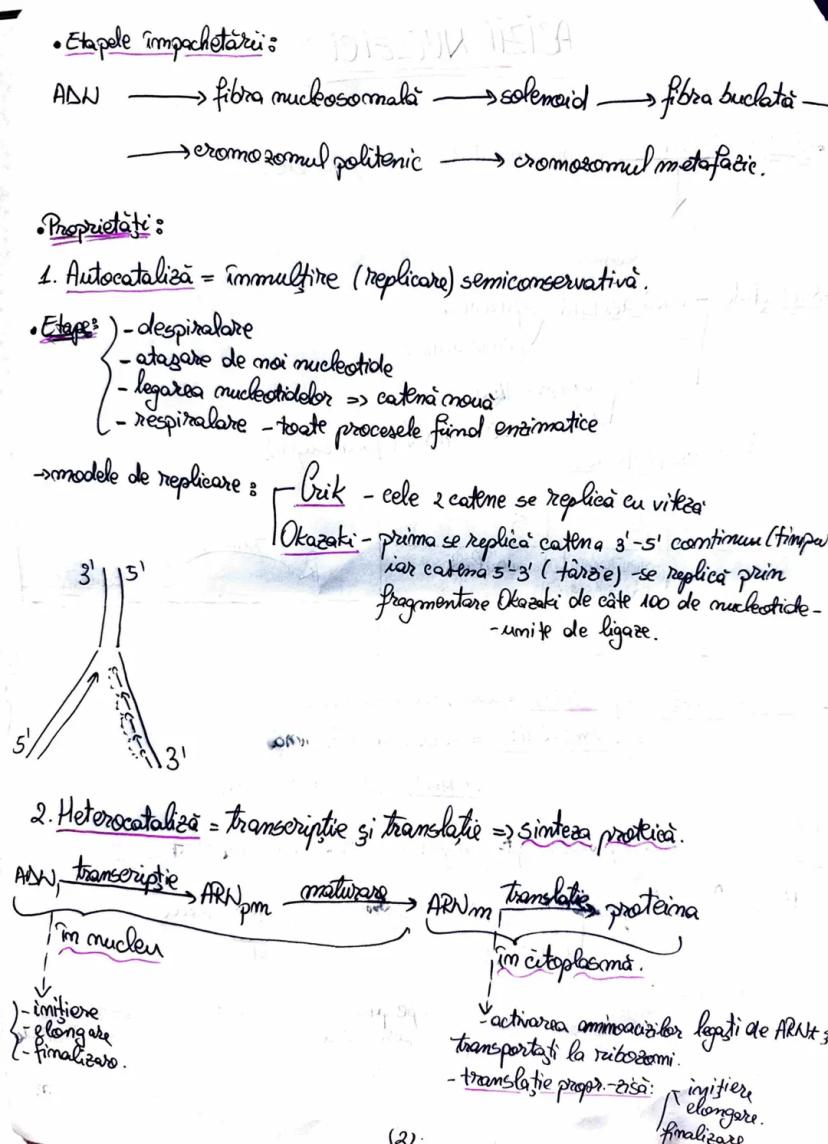 • Etapele împachetării:
ADN → fibra nucleosomală → solenoid → fibra buclată —
→ cromozomul politenic → cromozomul metafazic.
• Proprietăți:
1. Autocataliză = înmulțire (replicare) semiconservativă.
• Etape: - despiralare
- atașare de noi nucleotide
- legarea nucleotidelor => catenă nouă
- respiralare - toate procesele fiind enzimatice
→ modele de replicare: Crik - cele 2 catene se replică cu viteză
Okazaki - prima se replică catena 3'-5' continuu (timpu
iar catena 5'-3' (târzie) - se replică prin
fragmentare Okazaki de câte 100 de nucleotide -
- unite de ligaze.
3' 5'
5' 3'
2. Heterocataliză = transcripție și translație => sinteza proteică.
ADN transcripție → ARNpm maturare → ARNm translație → proteina
în nucleu
în citoplasmă.
- inițiere
- elongare
- finalizare.
- activarea aminoacizilor legați de ARNt
transportați la ribozomi.
- translație propr.-zisă: inițiere
elongare.
finalizare
(2).